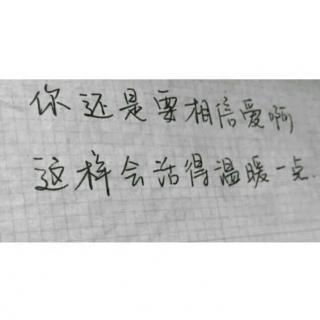 你还是要相信爱啊
这样会活得温暖一点.